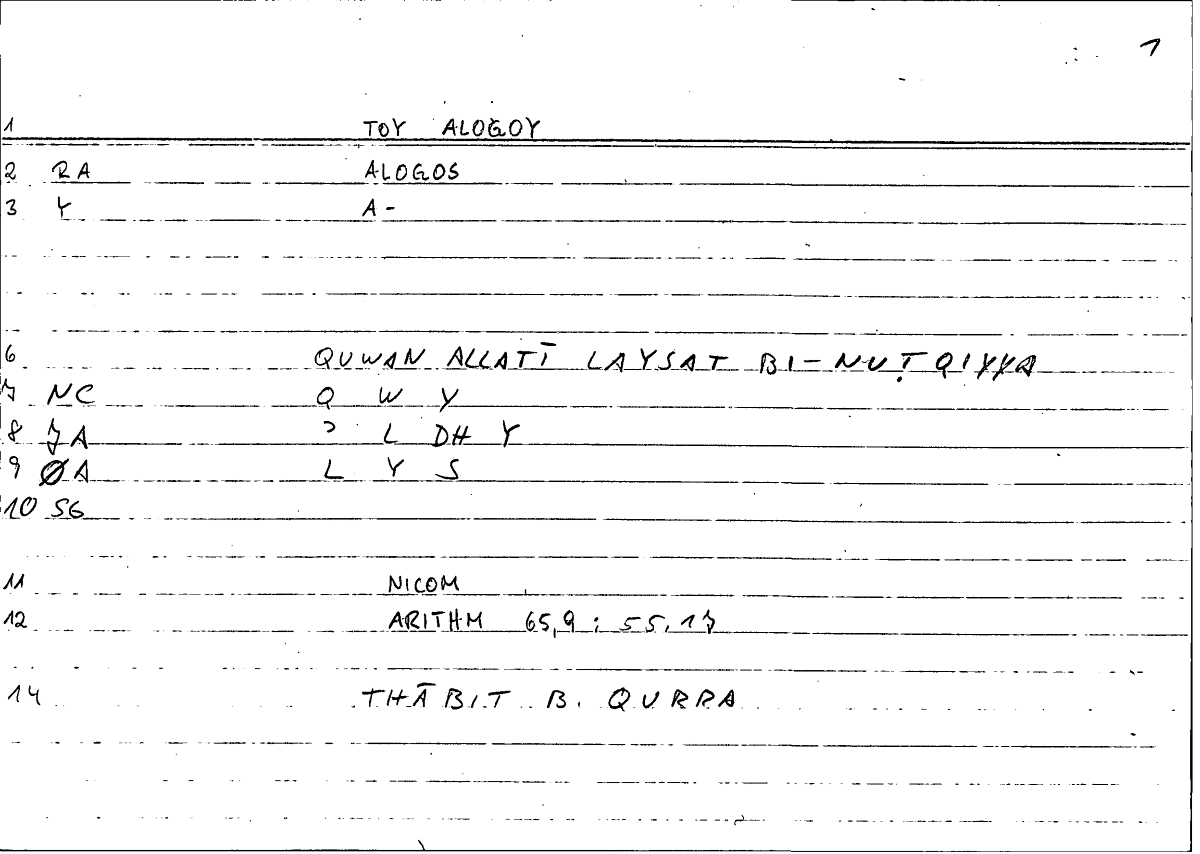 1
1 TOY ALOGOY
2 RA ALOGOS
3 Y A-
6 QUWAN ALLATĪ LAYSAT BI-NUṬQIYYA
7 NC Q W Y
8 7A ʾ L DH Y
9 ØA L Y S
10 SG
11 NICOM
12 ARITHM 65,9 : 55.17
14 THĀBIT B. QURRA